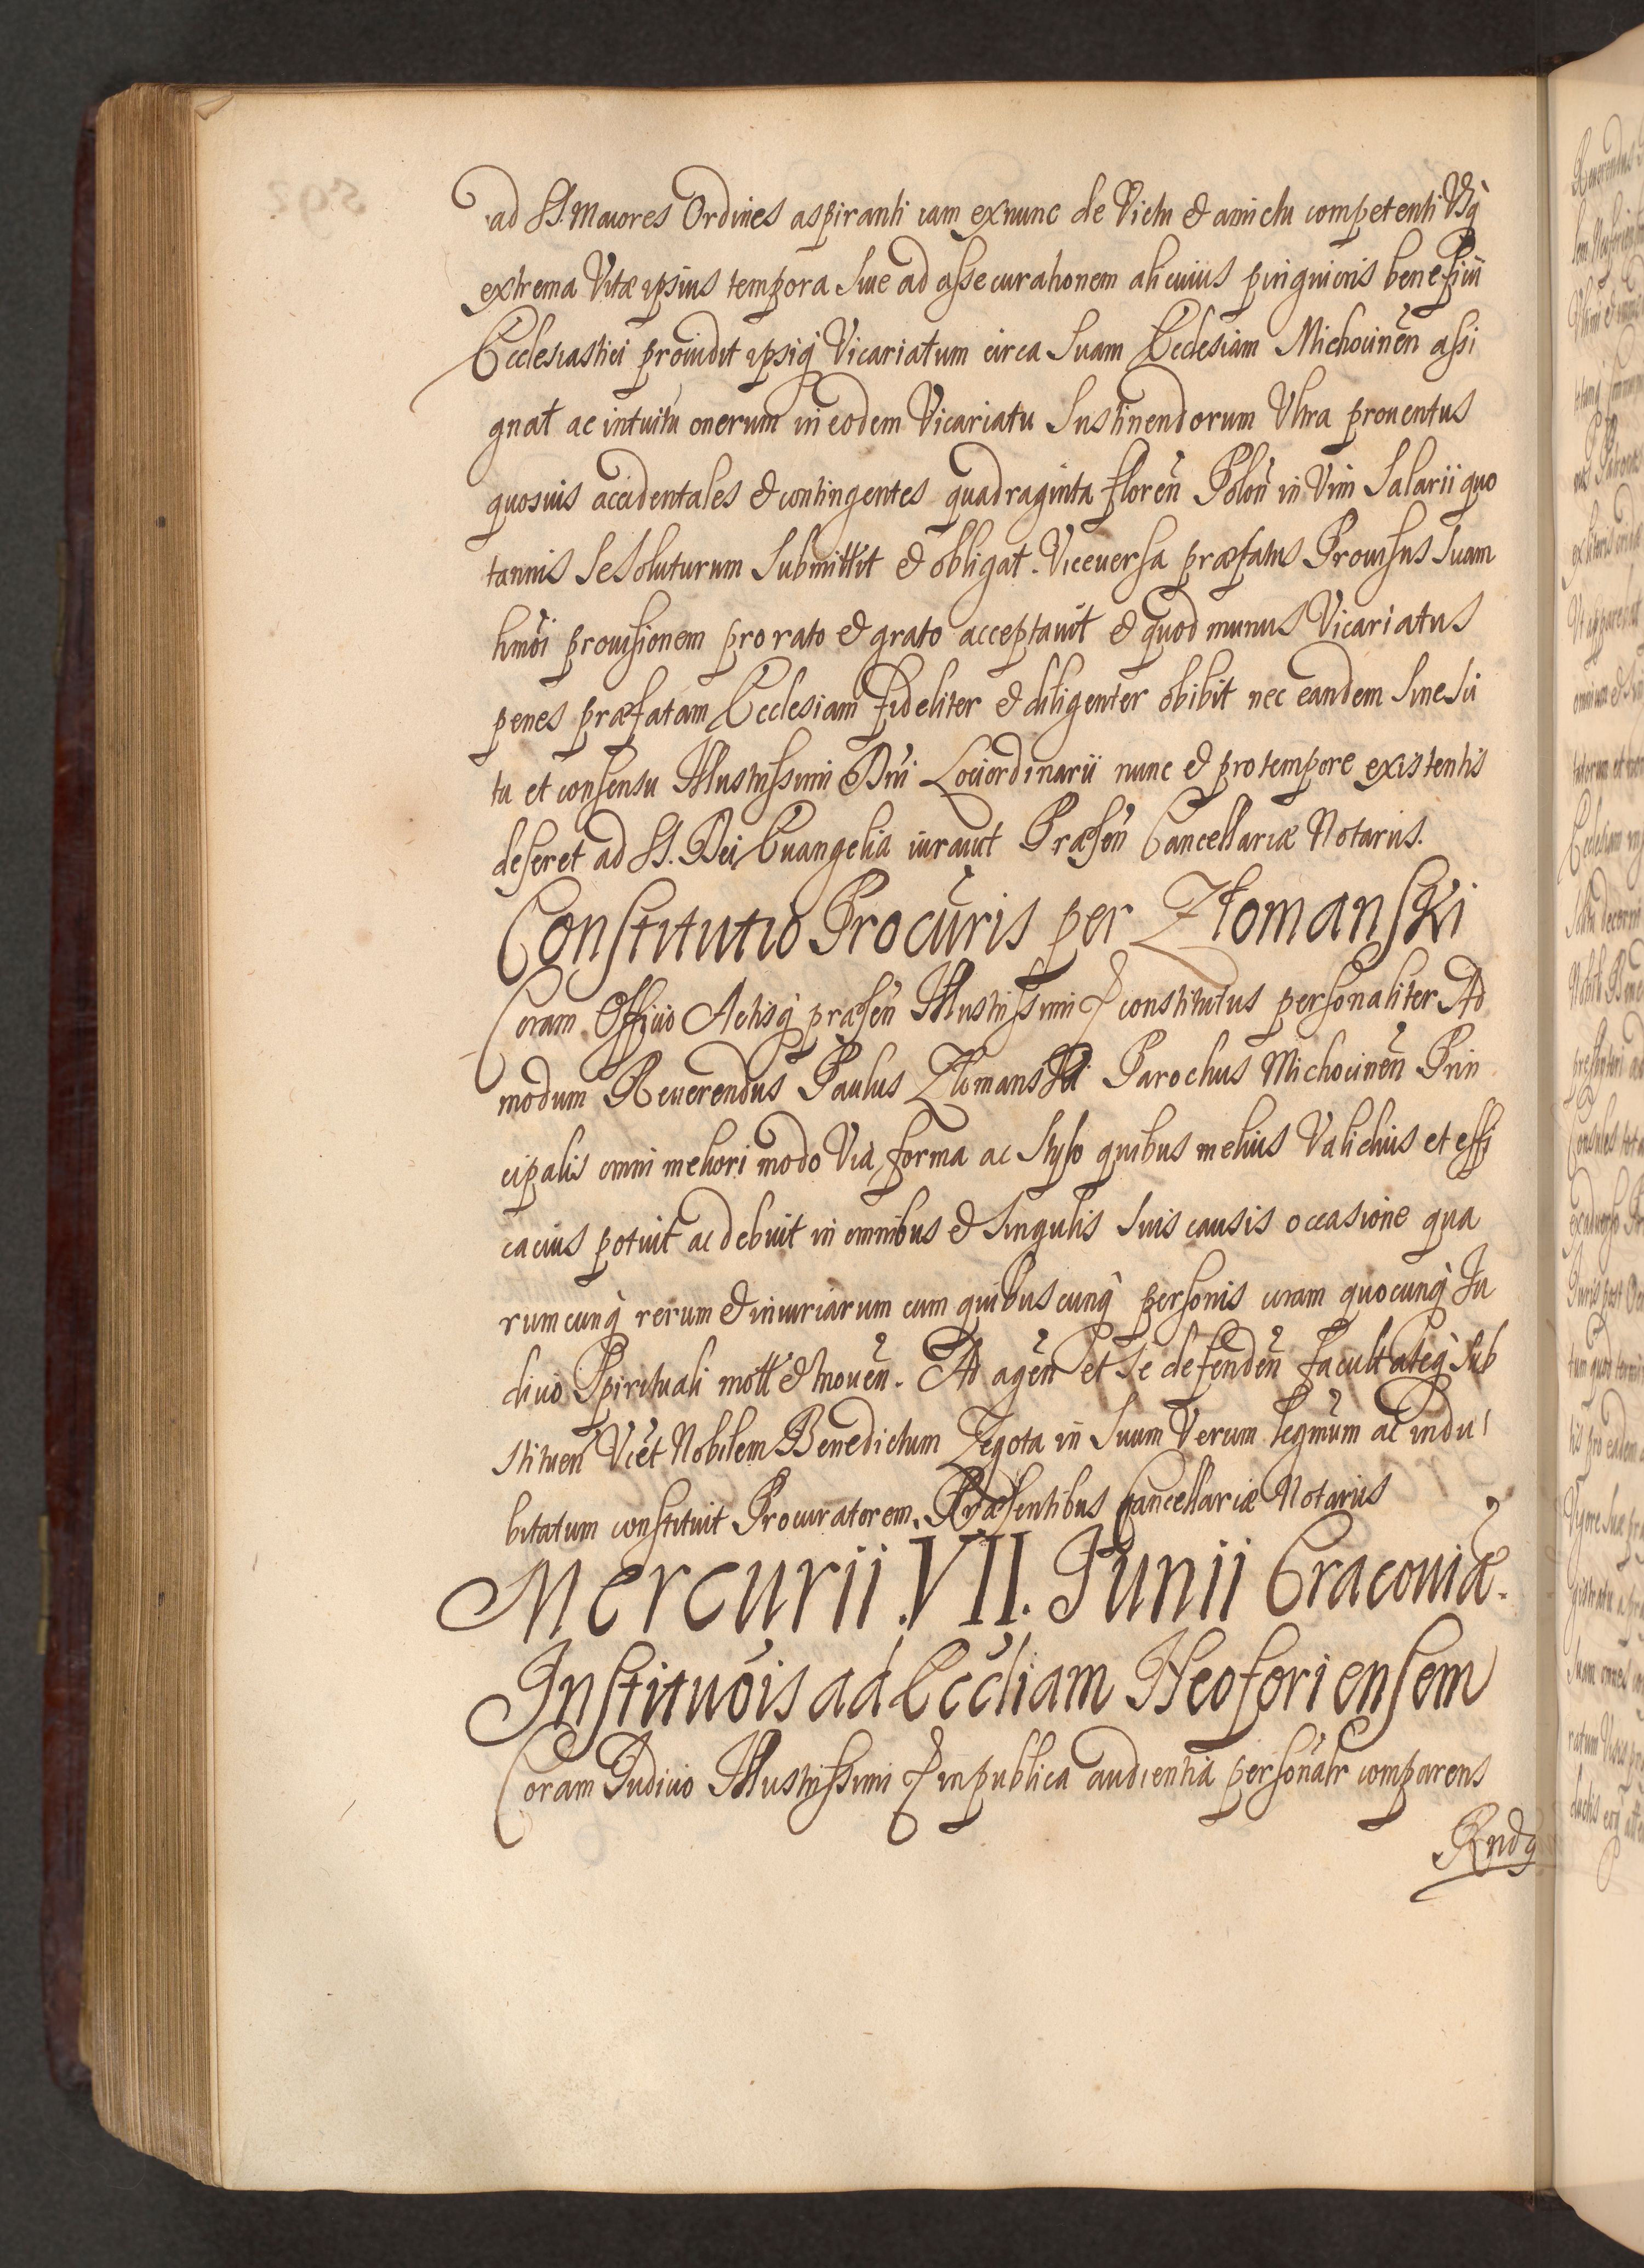 ad SS. Maiores Ordines aspiranti iam exnunc de Victu & amictu competenti Vsq̀
extrema Vitæ ipsius tempora Siue ad assecurationem alicuius pinguioris beneficii
Ecclesiastici prouidit ipsiq̀ Vicariatum circa Suam Ecclesiam Michouineñ assi
gnat ac intuitu onerum in eodem Vicariatu Sustinendorum Vltra prouentus
quosuis accidentales & contingentes quadraginta floreñ Poloñ in Vim Salarii quo
tannis Se Soluturum Submittit & obligat. Viceuersa præfatus Prouisus Suam
hmōi prouisionem pro rato & grato acceptauit & quod munus Vicariatus
penes præfatam Ecclesiam fideliter & diligenter obibit nec eandem Sine Sci
tu et consensu Illustrissimi Dñi Lociordinarii nunc & pro tempore existentis
deseret ad SS. Dei Euangelia iurauit Præseñ Cancellariæ Notariis.
Constitutio Procuris per Złomanski
Coram Officio Actisq̀ præseñ Illustrissimi & constitutus personaliter Ad
modum Reuerendus Paulus Złomanski Parochus Michouineñ Prin
cipalis omni meliori modo Via forma ac Stylo quibus melius Validius et effi
cacius potuit ac debuit in omnibus & Singulis Suis causis occasione qua
rumcunq̀ rerum & iniuriarum cum quibuscunq̀ personis coram quocunq̀ Iu
dicio Spirituali mott̃ & moueñ. Ad ageñ et Se defendeñ facultateq̀ Sub
stitueñ Vicet̃ Nobilem Benedictum Zegota in Suum Verum legmũm ac indu
bitatum constituit Procuratorem. Præsentibus Cancellariæ Notariis
Mercurii .VII. Iunii Cracouiæ.
Institutõis ad Eccliam Neoforiensem
Coram Iudicio Illustrissimi & in publica audientia personalr comparens
Rndq